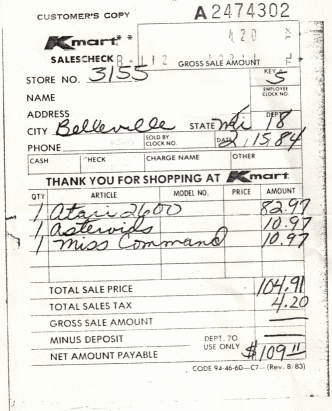 CUSTOMER'S COPY
A 2474302
4 20
TX
Kmart**
SALESCHECK
TL
GROSS SALE AMOUNT
STORE NO. 3155
KEY 5
EMPLOYEE CLOCK NO.
NAME
ADDRESS
DEPT 18
CITY Belleville STATE Mi
PHONE
SOLD BY CLOCK NO.
DATE 2,15,84
CASH CHECK CHARGE NAME OTHER
THANK YOU FOR SHOPPING AT Kmart
QTY ARTICLE MODEL NO. PRICE AMOUNT
1 Atari 2600 82.97
1 asteroids 10.97
1 Miss Command 10.97
TOTAL SALE PRICE 104.91
TOTAL SALES TAX 4.20
GROSS SALE AMOUNT
MINUS DEPOSIT
DEPT. 70 USE ONLY
NET AMOUNT PAYABLE $109 11
CODE 94-46-60—C7— (Rev. 8/83)